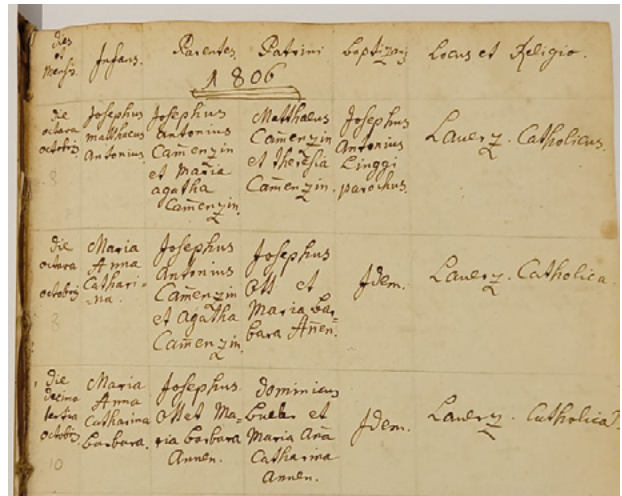 Dies et Mensis. Infans. Parentes. Patrini Baptizans Locus et Religio.
1806
die octava octobris
8
Josephus Matthaeus Antonius.
Josephus Antonius Camenzin et Maria agatha Camenzin.
Matthaeus Camenzin et Theresia Camenzin.
Josephus Antonius Linggi parochus.
Lauerz. Catholicus.
die octava octobris
8
Maria Anna Cathari-na.
Josephus Antonius Camenzin et Agatha Camenzin.
Josephus Ott et Maria Bar-bara Añen.
Idem.
Lauerz. Catholica.
die decima tertia octobris
10
Maria Anna Catharina Barbara.
Josephus Ott et Ma-ria barbara Annen.
dominicus et Maria Aña Catharina Annen.
Idem.
Lauerz. Catholica